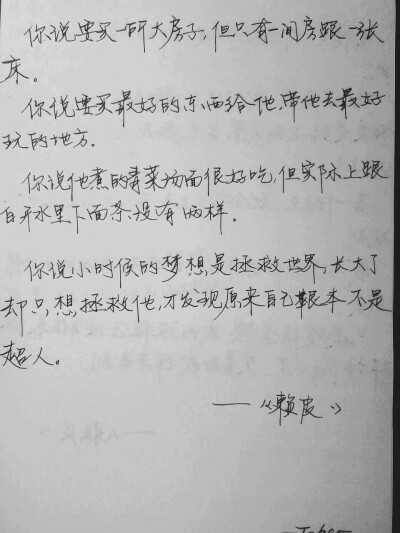 你说要买一所大房子，但只有一间房跟一张
床。
你说要买最好的东西给他，带他去最好
玩的地方.
你说他煮的青菜汤面很好吃，但实际上跟
白开水里下面条没有两样。
你说小时候的梦想是拯救世界，长大了
却只想拯救他，才发现原来自己根本不是
超人。
——《赖皮》